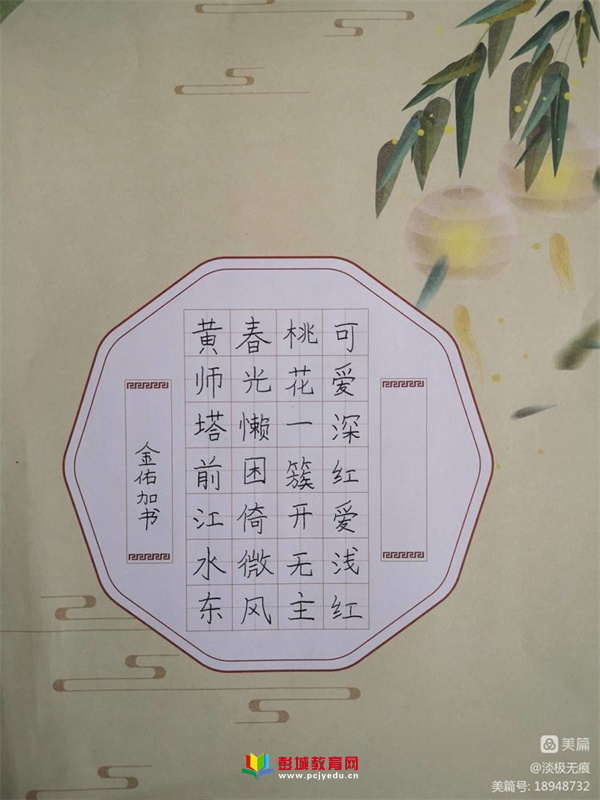 黄师塔前江水东
春光懒困倚微风
桃花一簇开无主
可爱深红爱浅红
金佑加书
彭城教育网
www.pcjyedu.cn
美篇
@淡极无痕
美篇号: 18948732